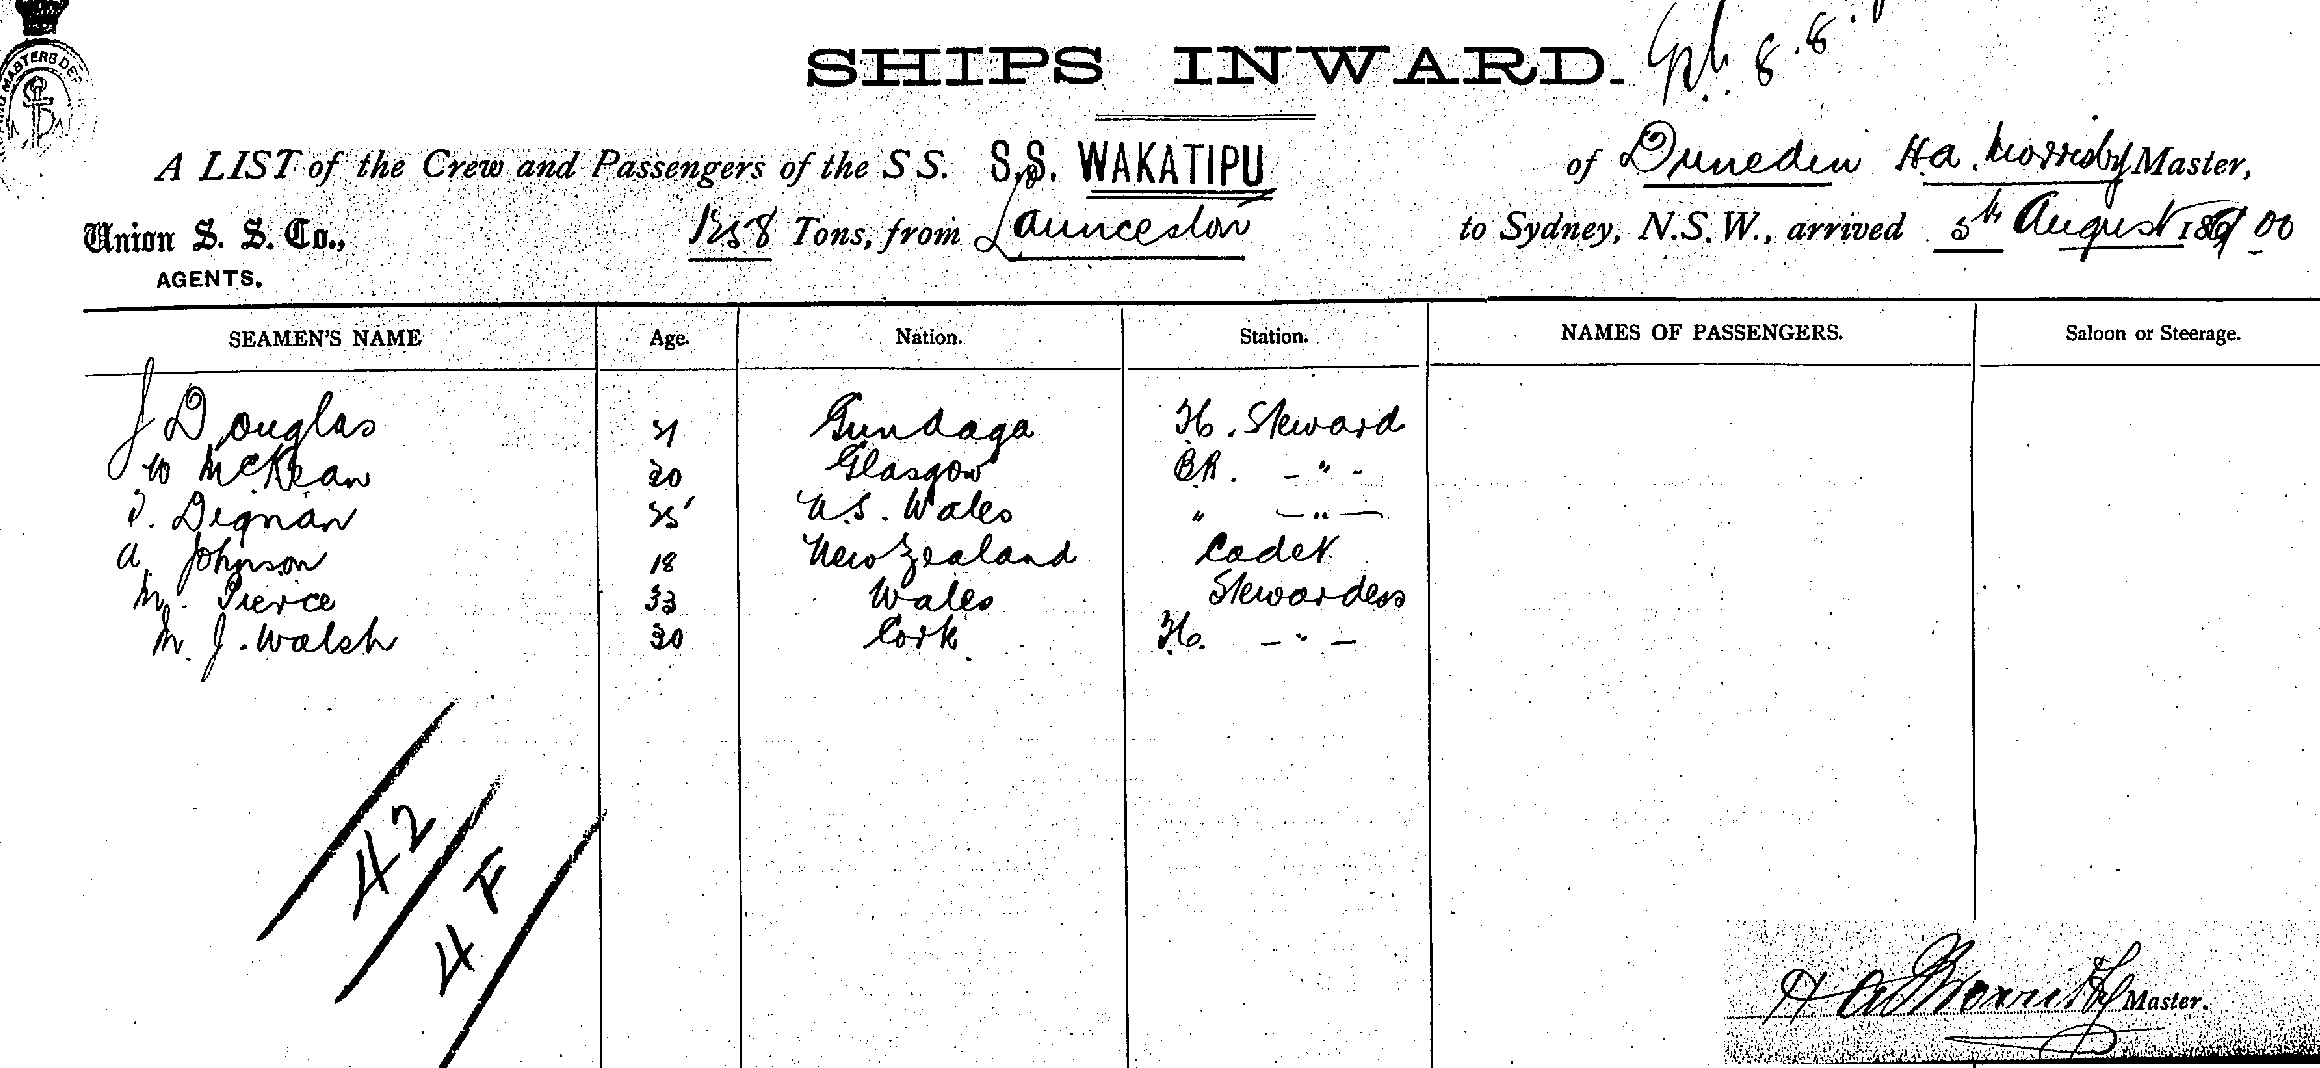 SHIPS INWARD. 8.8
MASTERS DE
A LIST of the Crew and Passengers of the S S. S.S. WAKATIPU of Dunedin H.A. Morrisby Master,
Union S. S. Co., 1258 Tons, from Launceston to Sydney, N.S.W., arrived 5th August 00
AGENTS.
SEAMEN'S NAME Age. Nation. Station. NAMES OF PASSENGERS. Saloon or Steerage.
J Douglas Gundaga Steward
W McKean Glasgow BR. - " -
Dignan N.S. Wales " - " -
A. Johnson 18 New Zealand Cadet
M. Pierce 33 Wales Stewardess
M. J. Walsh 30 Cork - " -
42
4 F
H A Morrisby Master.